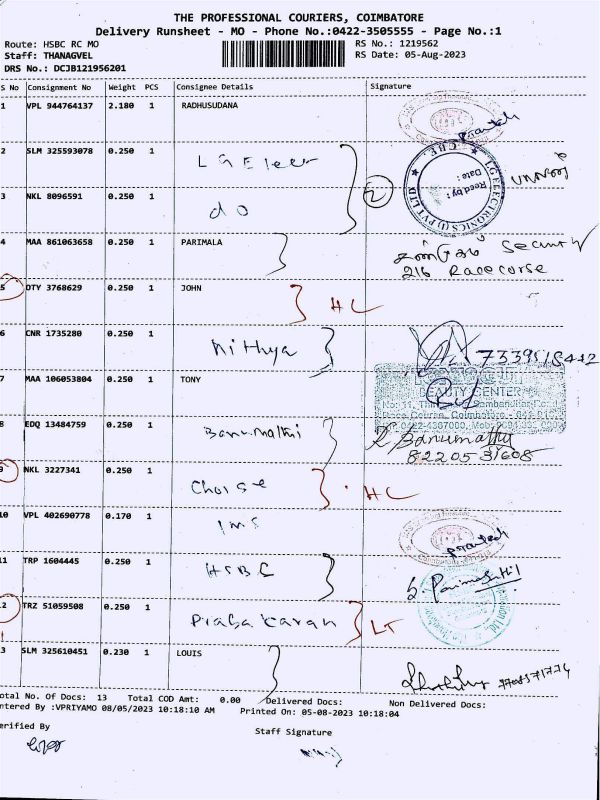 THE PROFESSIONAL COURIERS, COIMBATORE
Delivery Runsheet - MO - Phone No.:0422-3505555 - Page No.:1
Route: HSBC RC MO RS No.: 1219562
Staff: THANAGVEL RS Date: 05-Aug-2023
DRS No.: DCJB121956201
S No Consignment No Weight PCS Consignee Details Signature
1 VPL 944764137 2.180 1 RADHUSUDANA
2 SLM 325593078 0.250 1 LG Elecr
3 NKL 8096591 0.250 1 do
4 MAA 861063658 0.250 1 PARIMALA Security
216 Racecorse
5 DTY 3768629 0.250 1 JOHN HC
6 CNR 1735280 0.250 1 Nithya
7 MAA 106053804 0.250 1 TONY
BEAUTY CENTER
8 EDQ 13484759 0.250 1 Banumathi R. Banumathy
8220531608
9 NKL 3227341 0.250 1 Choise HC
10 VPL 402690778 0.170 1 IMS
11 TRP 1604445 0.250 1 HSBC
12 TRZ 51059508 0.250 1 Prabakaran LT
3 SLM 325610451 0.230 1 LOUIS
otal No. Of Docs: 13 Total COD Amt: 0.00 Delivered Docs: Non Delivered Docs:
ntered By :VPRIYAMO 08/05/2023 10:18:10 AM Printed On: 05-08-2023 10:18:04
erified By Staff Signature
LG ELECTRONICS (I) PVT LTD
CBE.
Recd by:
Date: